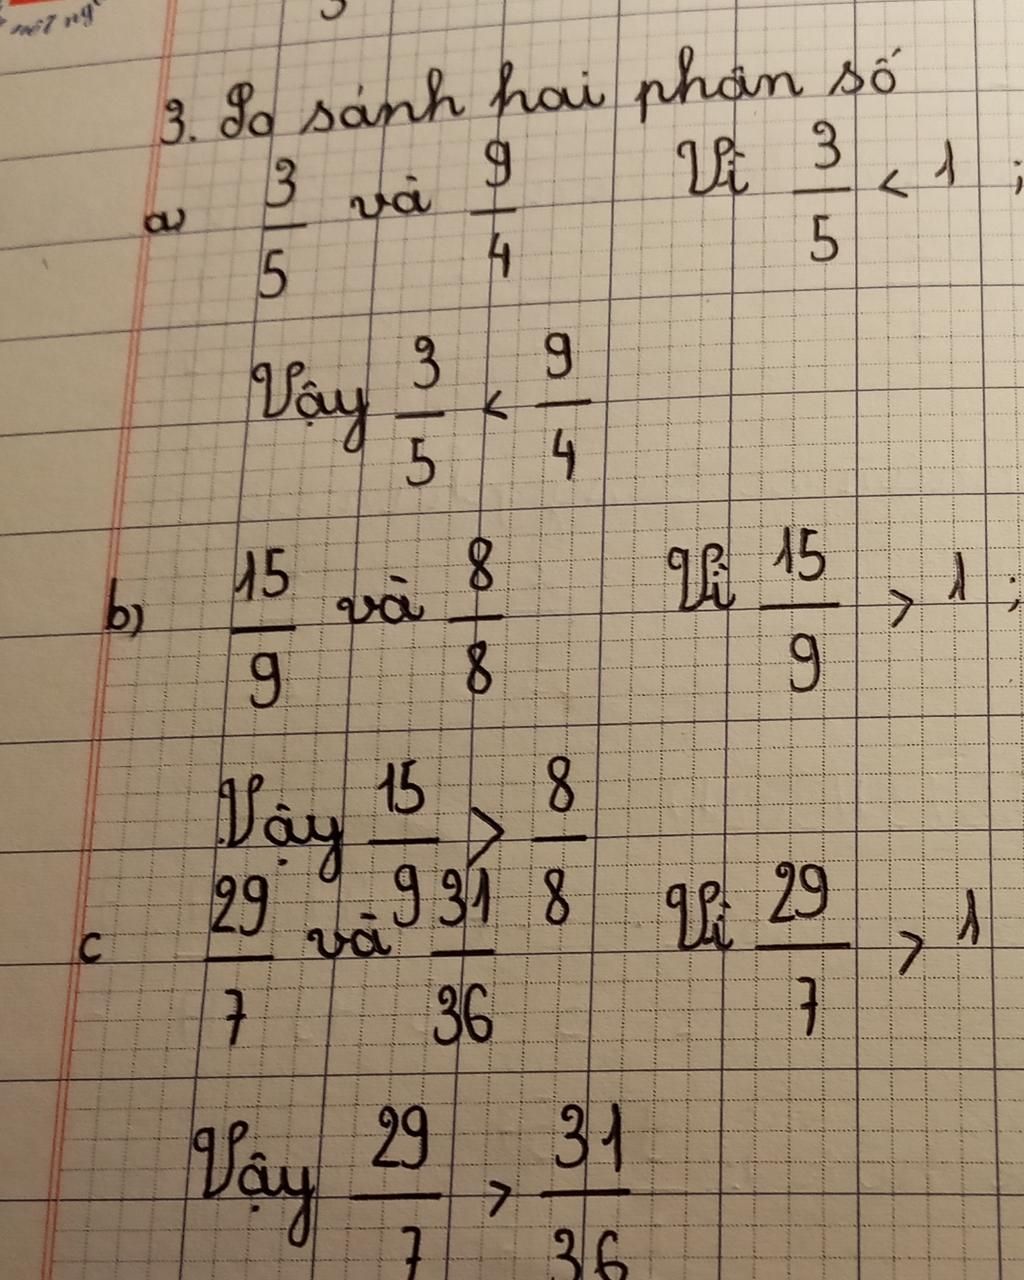 một ng
3. So sánh hai phân số
a) 3/5 và 9/4 Vì 3/5 < 1 ;
Vậy 3/5 < 9/4
b) 15/9 và 8/8 Vì 15/9 > 1 ;
Vậy 15/9 > 8/8
c 29/7 và 31/36 Vì 29/7 > 1
Vậy 29/7 > 31/36